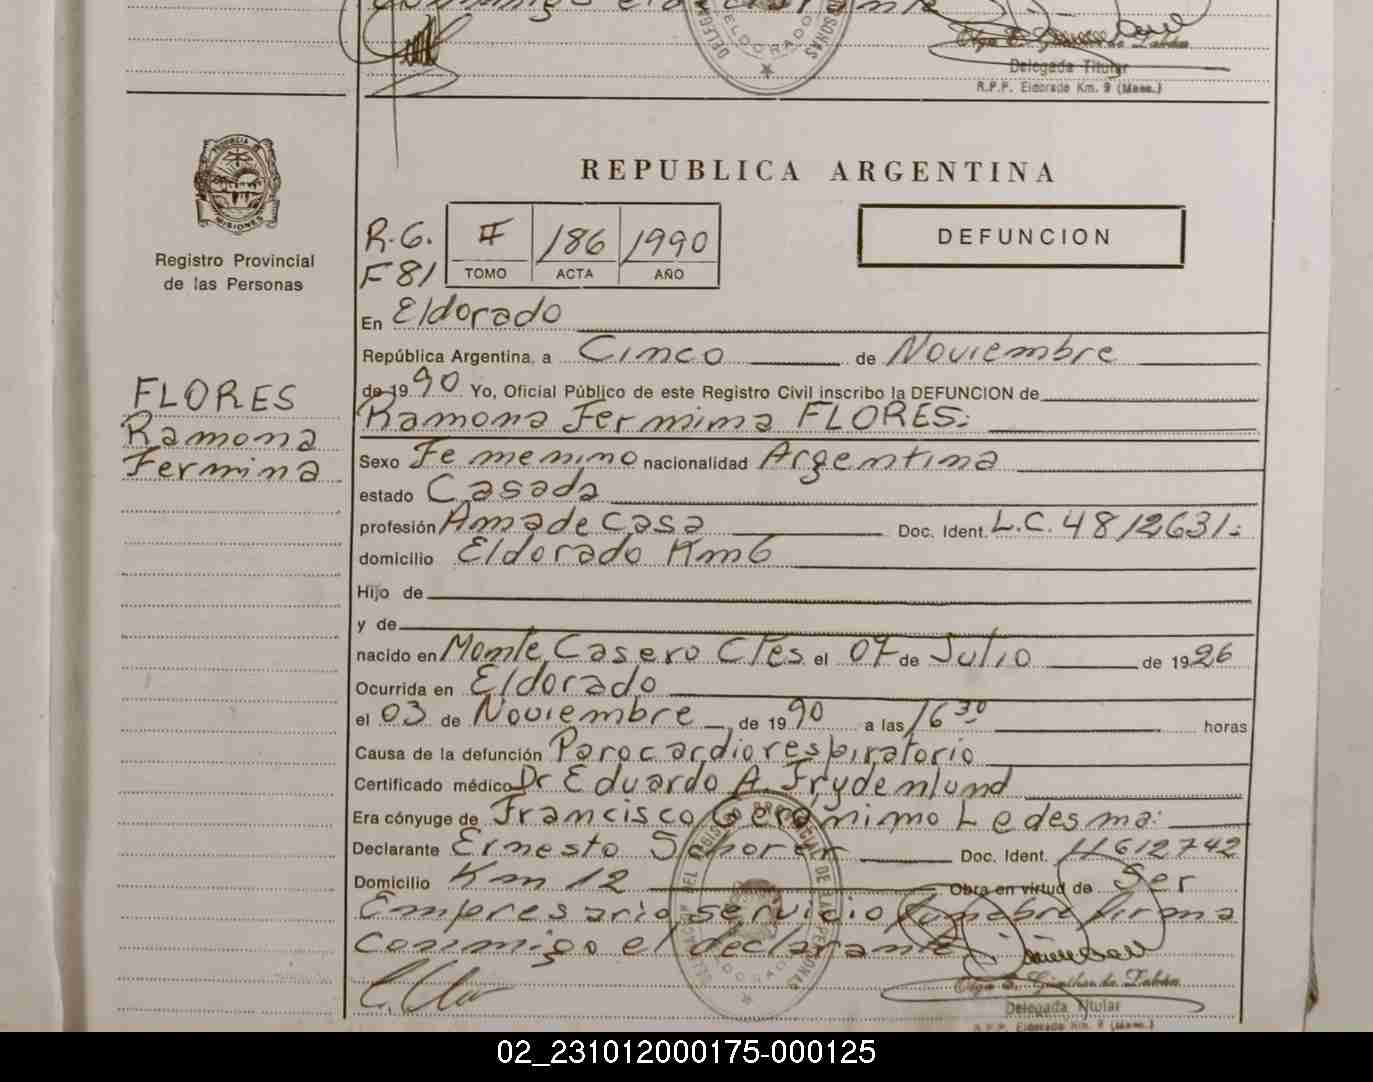 DELEG
ELDORADO
SONAS
Delegada Titular
R.P.P. Eldorado Km. 9 (Mnes.)
PROVINCIA DE
MISIONES
Registro Provincial
de las Personas
REPUBLICA ARGENTINA
R.G.
F 81
I 186 1990
TOMO ACTA AÑO
DEFUNCION
En Eldorado
República Argentina, a Cinco de Noviembre
de 1990 Yo, Oficial Público de este Registro Civil inscribo la DEFUNCION de
Ramona Fermina FLORES:
FLORES
Ramona
Fermina
Sexo Femenino nacionalidad Argentina
estado Casada
profesión Ama de casa Doc. Ident. L.C. 4812631:
domicilio Eldorado Km 6
Hijo de
y de
nacido en Monte Casero Ctes el 07 de Julio de 1926
Ocurrida en Eldorado
el 03 de Noviembre de 1990 a las 16 30 horas
Causa de la defunción Parocardiorespiratorio
Certificado médico Dr Eduardo A. Frydenlund
Era cónyuge de Francisco Gerónimo Ledesma:
Declarante Ernesto Doc. Ident. 11612742
Domicilio Km 12 Obra en virtud de Ser
Empresario servicio funebre firma
conmigo el declarante
Delegada Titular
R.P.P. Eldorado Km. 9 (Mnes.)
02_231012000175-000125